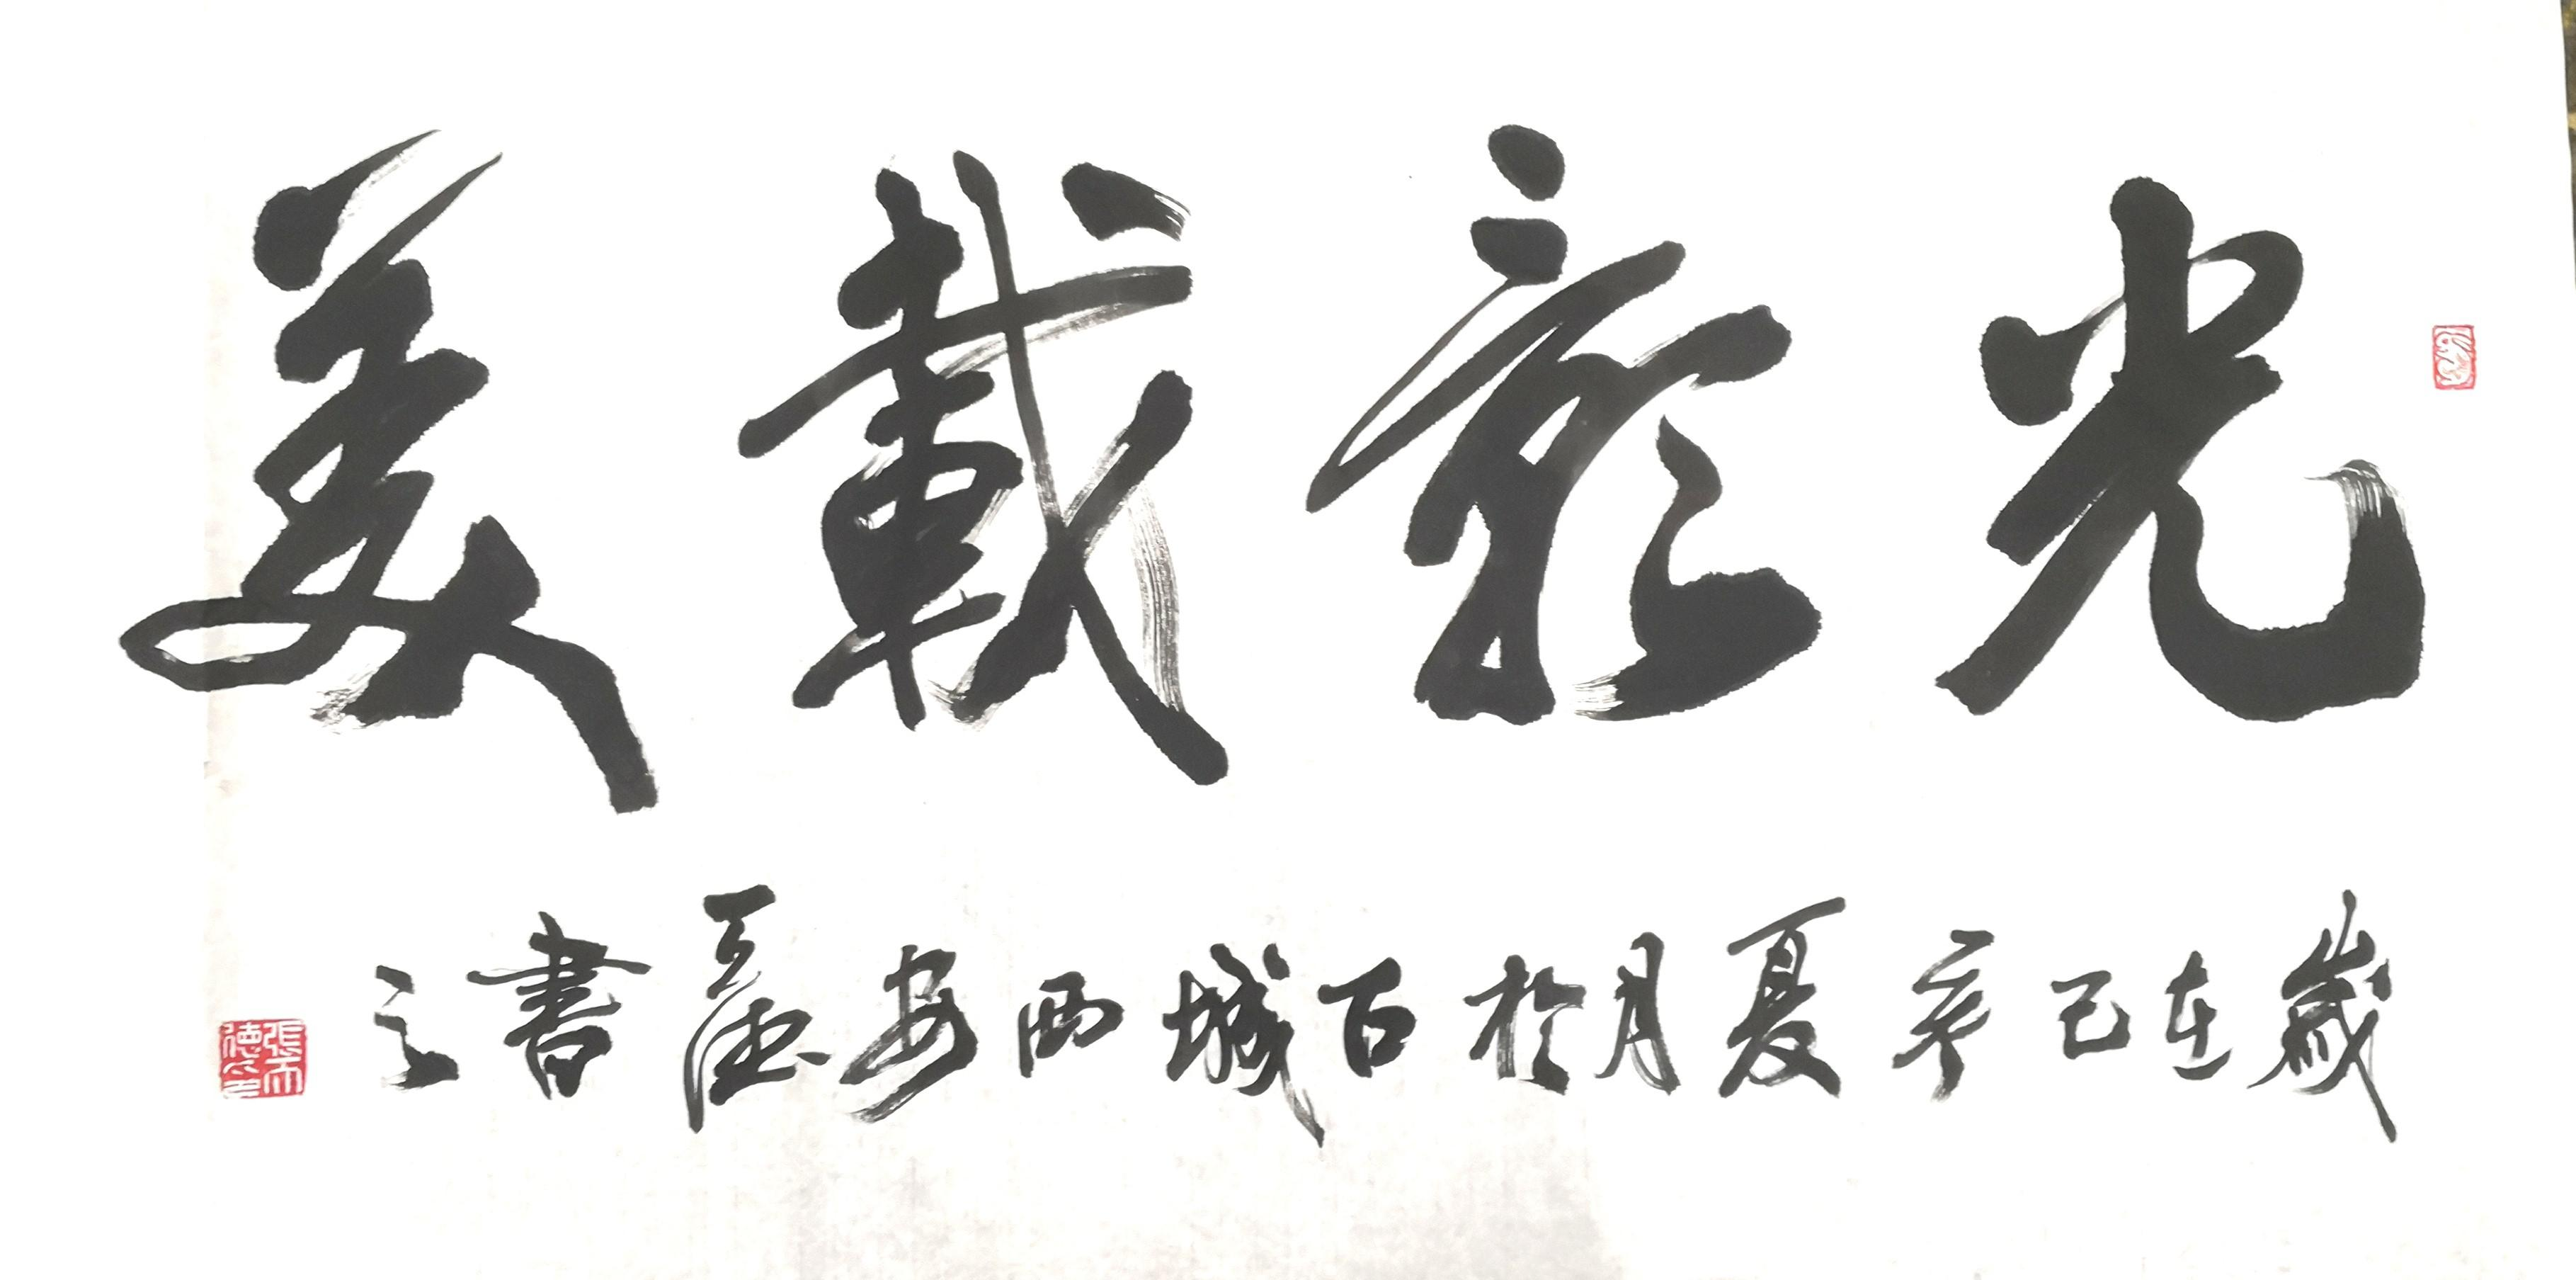 光載美
歲在己亥夏月於古城西安天德書之
張天德印